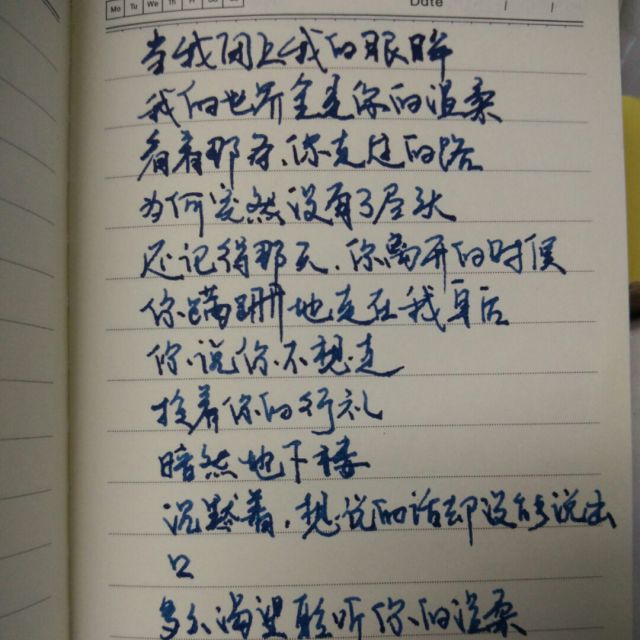 Mo Tu We Th Fr Sa Su
Date / /
当我闭上我的眼眸
我的世界全是你的温柔
看着那夜你走过的路
为何突然没有了尽头
还记得那天,你离开的时候
你蹒跚地走在我身后
你说你不想走
拎着你的行礼
暗然地下楼
沉默着,想说的话却没能说出
口
多么渴望聆听你的温柔